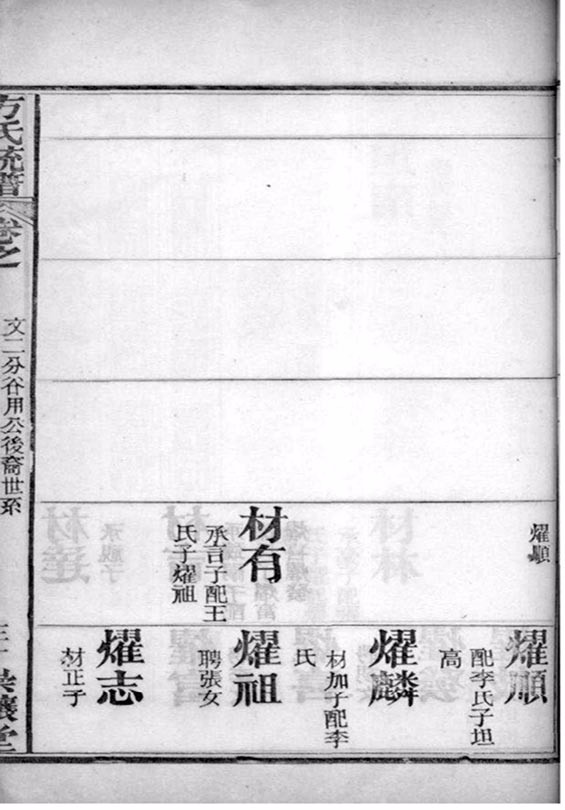 耀順
材有
承言子配王
氏子耀祖
耀順
配李氏子坦
高
耀麟
材加子配李
氏
耀祖
聘張女
耀志
材正子
方氏統譜
卷之
文二分谷用公後裔世系